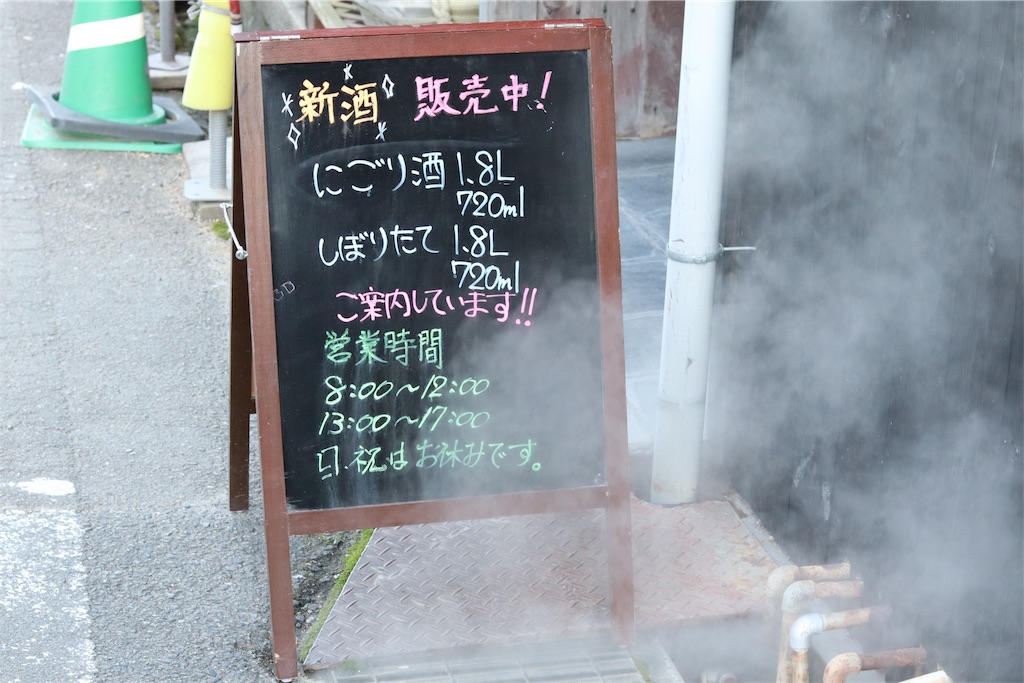 新酒 販売中!
にごり酒 1.8L
720ml
しぼりたて 1.8L
720ml
ご案内しています!!
営業時間
8:00~12:00
13:00~17:00
日・祝はお休みです。